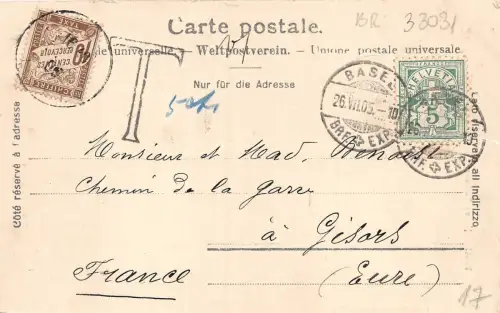 Carte postale.
BR 33031
universelle. — Weltpostverein. — Unione postale universale
Nur für die Adresse
Côté réservé à l'adresse
Lato riservato all' indirizzo
10
CENTIMES
À PERCEVOIR
T
BASEL
26.VII.05. — 10
BRF. EXP.
HELVETIA
5
Monsieur et Mad. Benoit
Chemin de la gare
à Gisors
France (Eure)
17